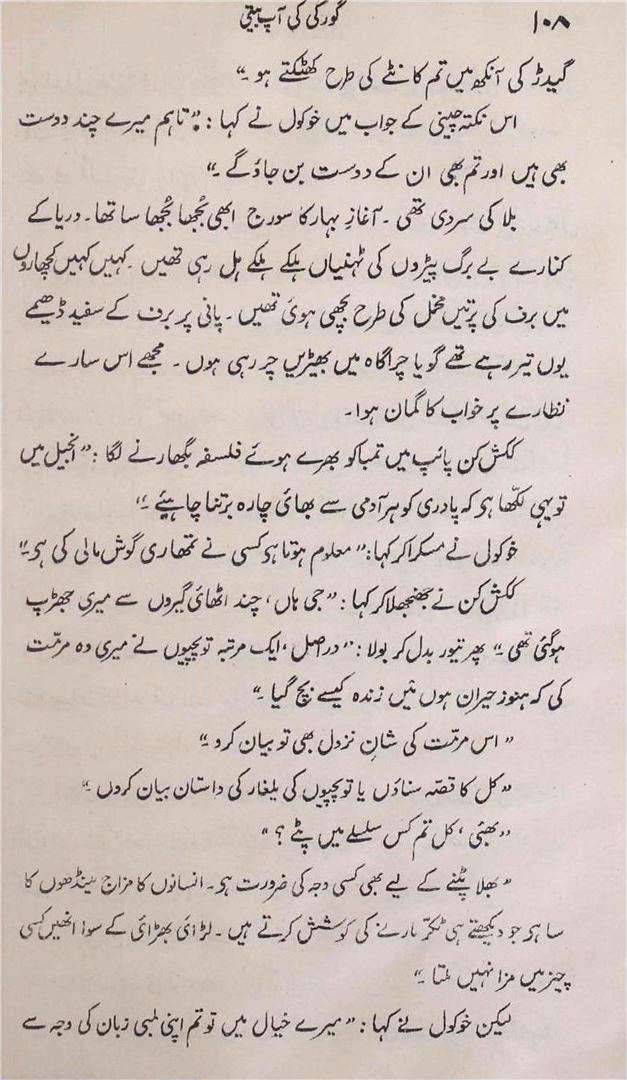 ۱۰۸ گورکی کی آپ بیتی
گیدڑ کی آنکھ میں تم کانٹے کی طرح کھٹکتے ہو ۔"
اس نکتہ چینی کے جواب میں خوکول نے کہا : " تاہم میرے چند دوست
بھی ہیں اور تم بھی ان کے دوست بن جاؤ گے ۔"
بلا کی سردی تھی ۔ آغازِ بہار کا سورج ابھی بُجھا بُجھا سا تھا۔ دریا کے
کنارے بے برگ پیڑوں کی ٹہنیاں ہلکے ہلکے ہل رہی تھیں ۔ کہیں کہیں کچھاروں
میں برف کی پرتیں مخمل کی طرح بچھی ہوئی تھیں ۔ پانی پر برف کے سفید ڈھیمے
یوں تیر رہے تھے گویا چراگاہ میں بھیڑیں چر رہی ہوں ۔ مجھے اس سارے
نظارے پر خواب کا گمان ہوا۔
ککش کن پائپ میں تمباکو بھرے ہوئے فلسفہ بگھارنے لگا : " انجیل میں
تو یہی لکھا ہو کہ پادری کو ہر آدمی سے بھائی چارہ برتنا چاہیئے ۔"
خوکول نے مسکرا کر کہا : " معلوم ہوتا ہو کسی نے تمھاری گوش مالی کی ہو ۔"
ککش کن نے جھنجھلا کر کہا : " جی ہاں ، چند اٹھائی گیروں سے میری جھڑپ
ہو گئی تھی ۔" پھر تیور بدل کر بولا : " در اصل ، ایک مرتبہ توپچیوں نے میری وہ مرمّت
کی کہ ہنوز حیران ہوں میں زندہ کیسے بچ گیا ۔"
" اس مرمّت کی شانِ نزول بھی تو بیان کرو ۔"
" کل کا قصّہ سناؤں یا توپچیوں کی یلغار کی داستان بیان کروں ۔"
" بھئی ، کل تم کس سلسلے میں پٹے ؟ "
" بھلا پٹنے کے لیے بھی کسی وجہ کی ضرورت ہو ۔ انسانوں کا مزاج مینڈھوں کا
سا ہو جو دیکھتے ہی ٹکّر مارنے کی کوشش کرتے ہیں ۔ لڑائی بھڑائی کے سوا انھیں کسی
چیز میں مزا نہیں ملتا ۔"
لیکن خوکول نے کہا : " میرے خیال میں تو تم اپنی لمبی زبان کی وجہ سے